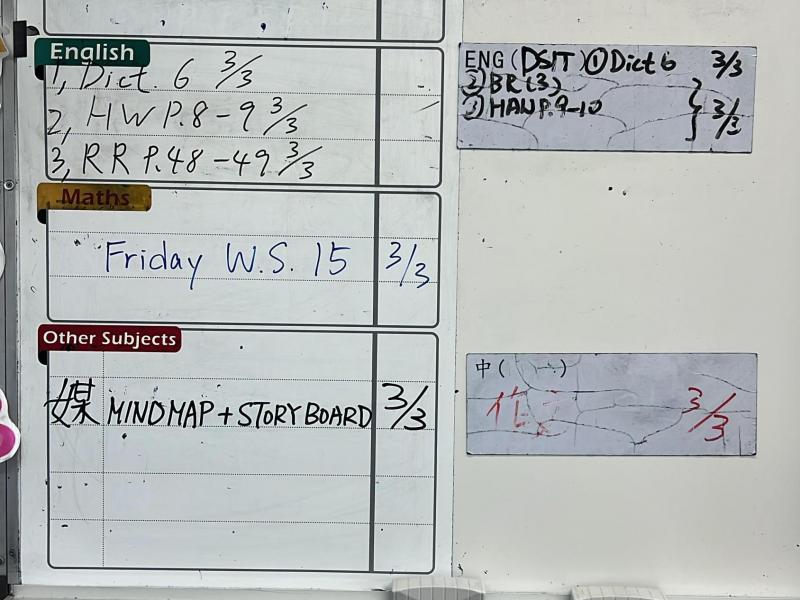 English
1, Dict. 6 3/3
2, HW P.8-9 3/3
3, RR P.48-49 3/3
Maths
Friday W.S. 15 3/3
Other Subjects
媒 MINDMAP + STORYBOARD 3/3
ENG (DSIT) ① Dict 6 3/3
② BR (3)
③ HAN P.9-10 } 3/3
中( )
作 3/3